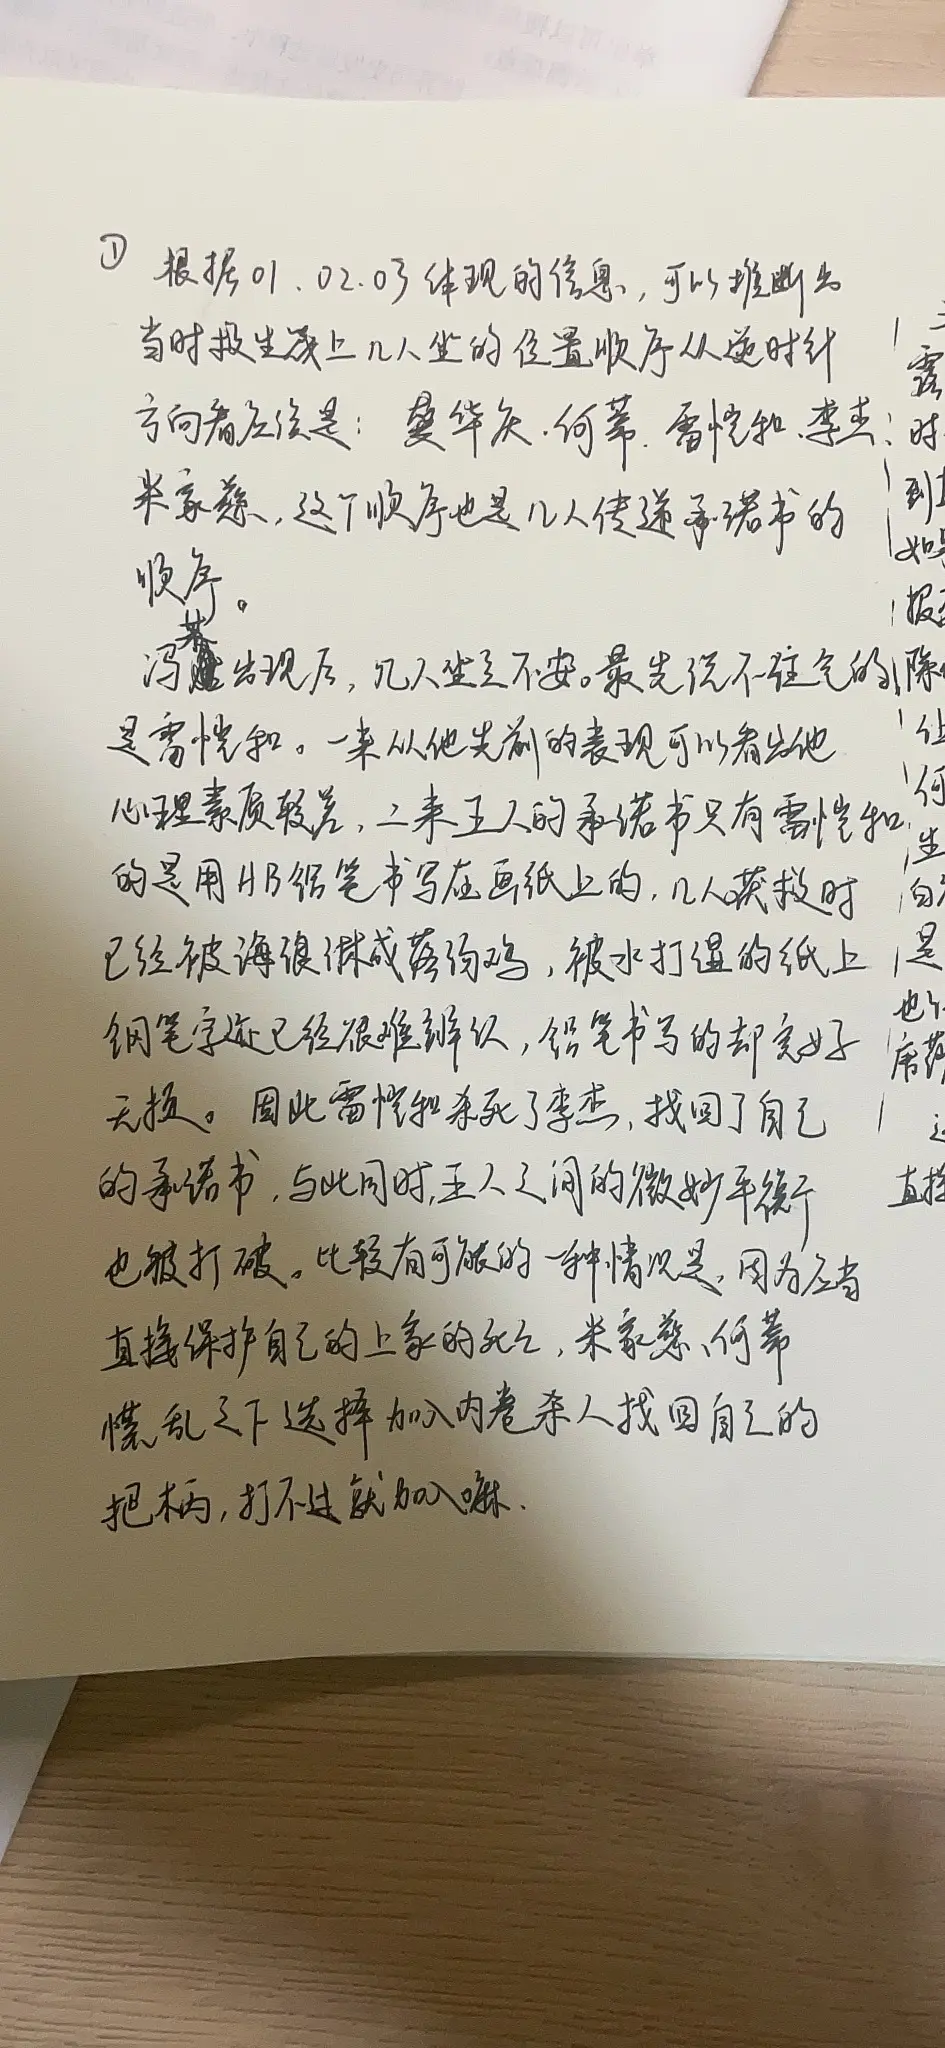 ① 根据01.02.03体现的信息，可以推断出
当时救生筏上几人坐的位置顺序从逆时针
方向看应该是：樊华庆.何蒂.雷恺和.李杰.
米家慈，这个顺序也是几人传递承诺书的
顺序。
冯苏出现后，几人坐立不安。最先沉不住气的
是雷恺和。一来从他先前的表现可以看出他
心理素质较差，二来五人的承诺书只有雷恺和
的是用HB铅笔书写在画纸上的，几人获救时
已经被海浪淋成落汤鸡，被水打湿的纸上
钢笔字迹已经很难辨认，铅笔书写的却完好
无损。因此雷恺和杀死了李杰，找回了自己
的承诺书，与此同时，五人之间的微妙平衡
也被打破。比较有可能的一种情况是，因为应当
直接保护自己的上家的死亡，米家慈、何蒂
慌乱之下选择加入内卷杀人找回自己的
把柄，打不过就加入嘛.
时
到
如果
报
除
位
何
坐
自
是
也
直接